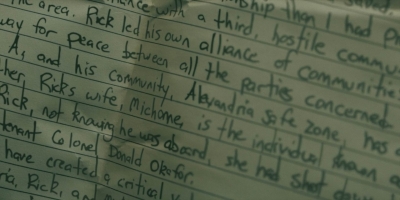 the area. Rick led his own alliance of communities
with a third, hostile commu
ship than I had
way for peace between all the parties concerned
A, and his community, Alexandria Safe Zone, has
Rick's wife, Michonne, is the individual known
Rick, not knowing he was aboard, she had shot down
tenant Colonel Donald Okafor.
have created a critical
Rick, and